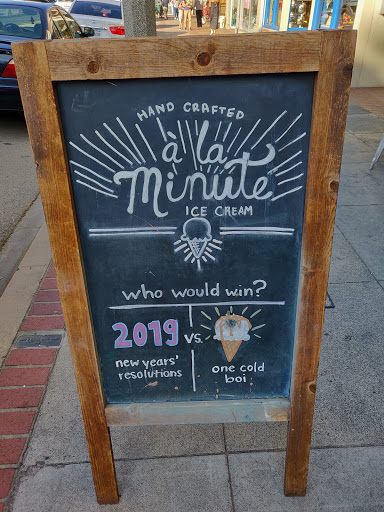 HAND CRAFTED
à la
Minute
ICE CREAM
who would win?
2019 vs.
new years'
resolutions
one cold
boi